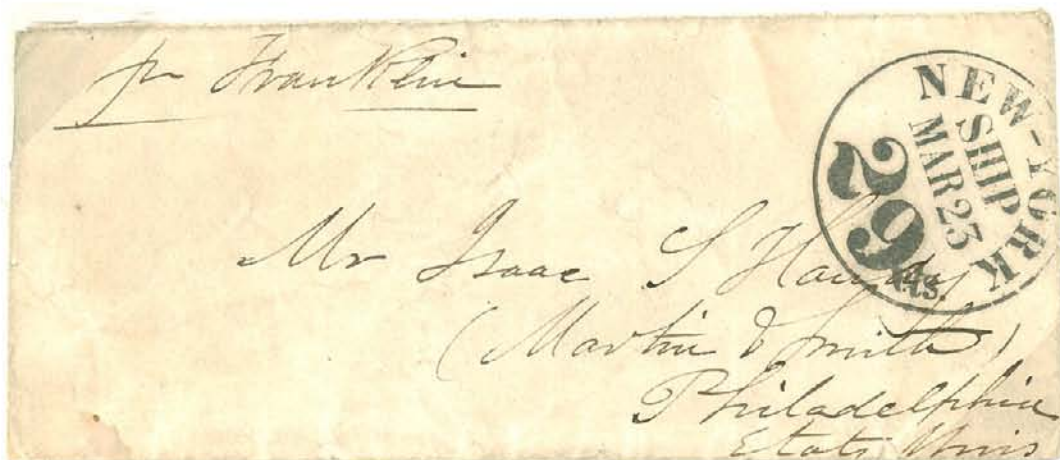 pr Franklin
NEW-YORK
SHIP
MAR 23
29
cts.
Mr Isaac S
(Martin & Smith)
Philadelphia
Etats Unis